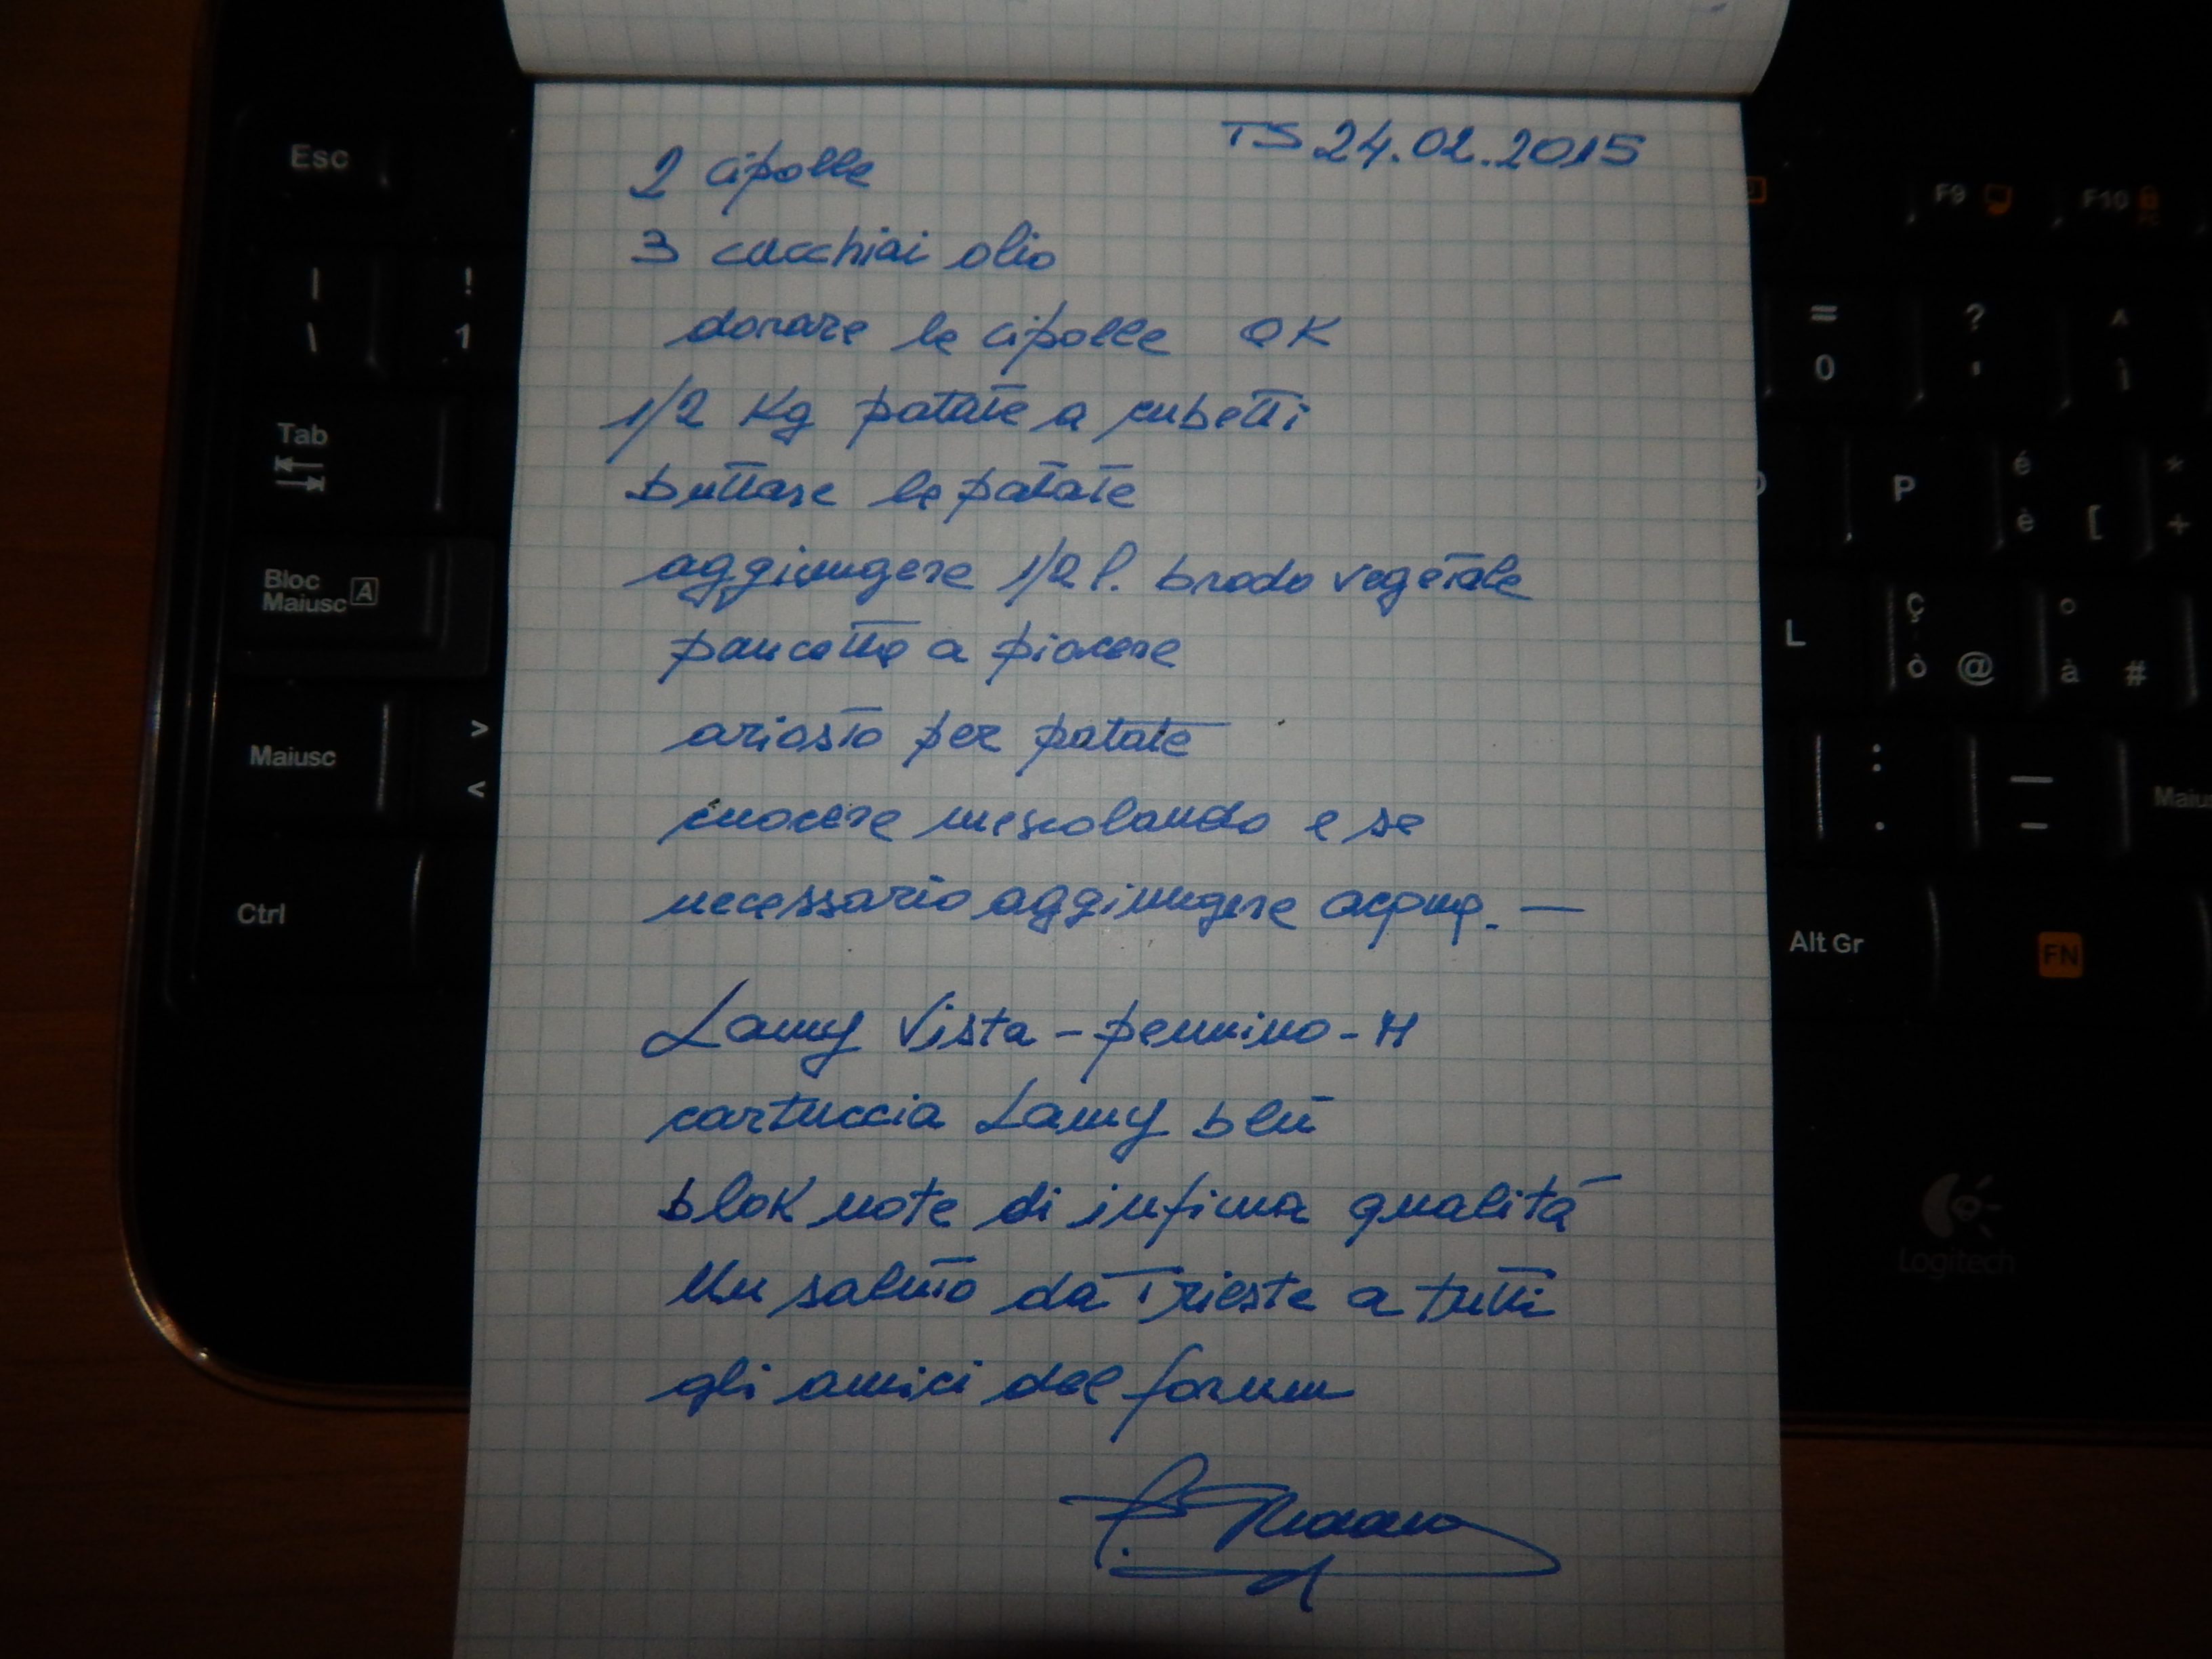 TS 24.02.2015
2 cipolle
3 cucchiai olio
dorare le cipolle OK
1/2 Kg patate a cubetti
buttare le patate
aggiungere 1/2 l. brodo vegetale
pancetta a piacere
ariosto per patate
cuocere mescolando e se
necessario aggiungere acqua. —
Lamy Vista - pennino - M
cartuccia Lamy blu
blok note di infima qualità
Un saluto da Trieste a tutti
gli amici del forum
Esc
| \
! 1
Tab
Bloc Maiusc A
Maiusc
> <
Ctrl
F9
F10
= 0
? '
^ ì
P
é è [
* +
L
ç ò @
° à #
: .
_ -
Maiu
Alt Gr
FN
Logitech